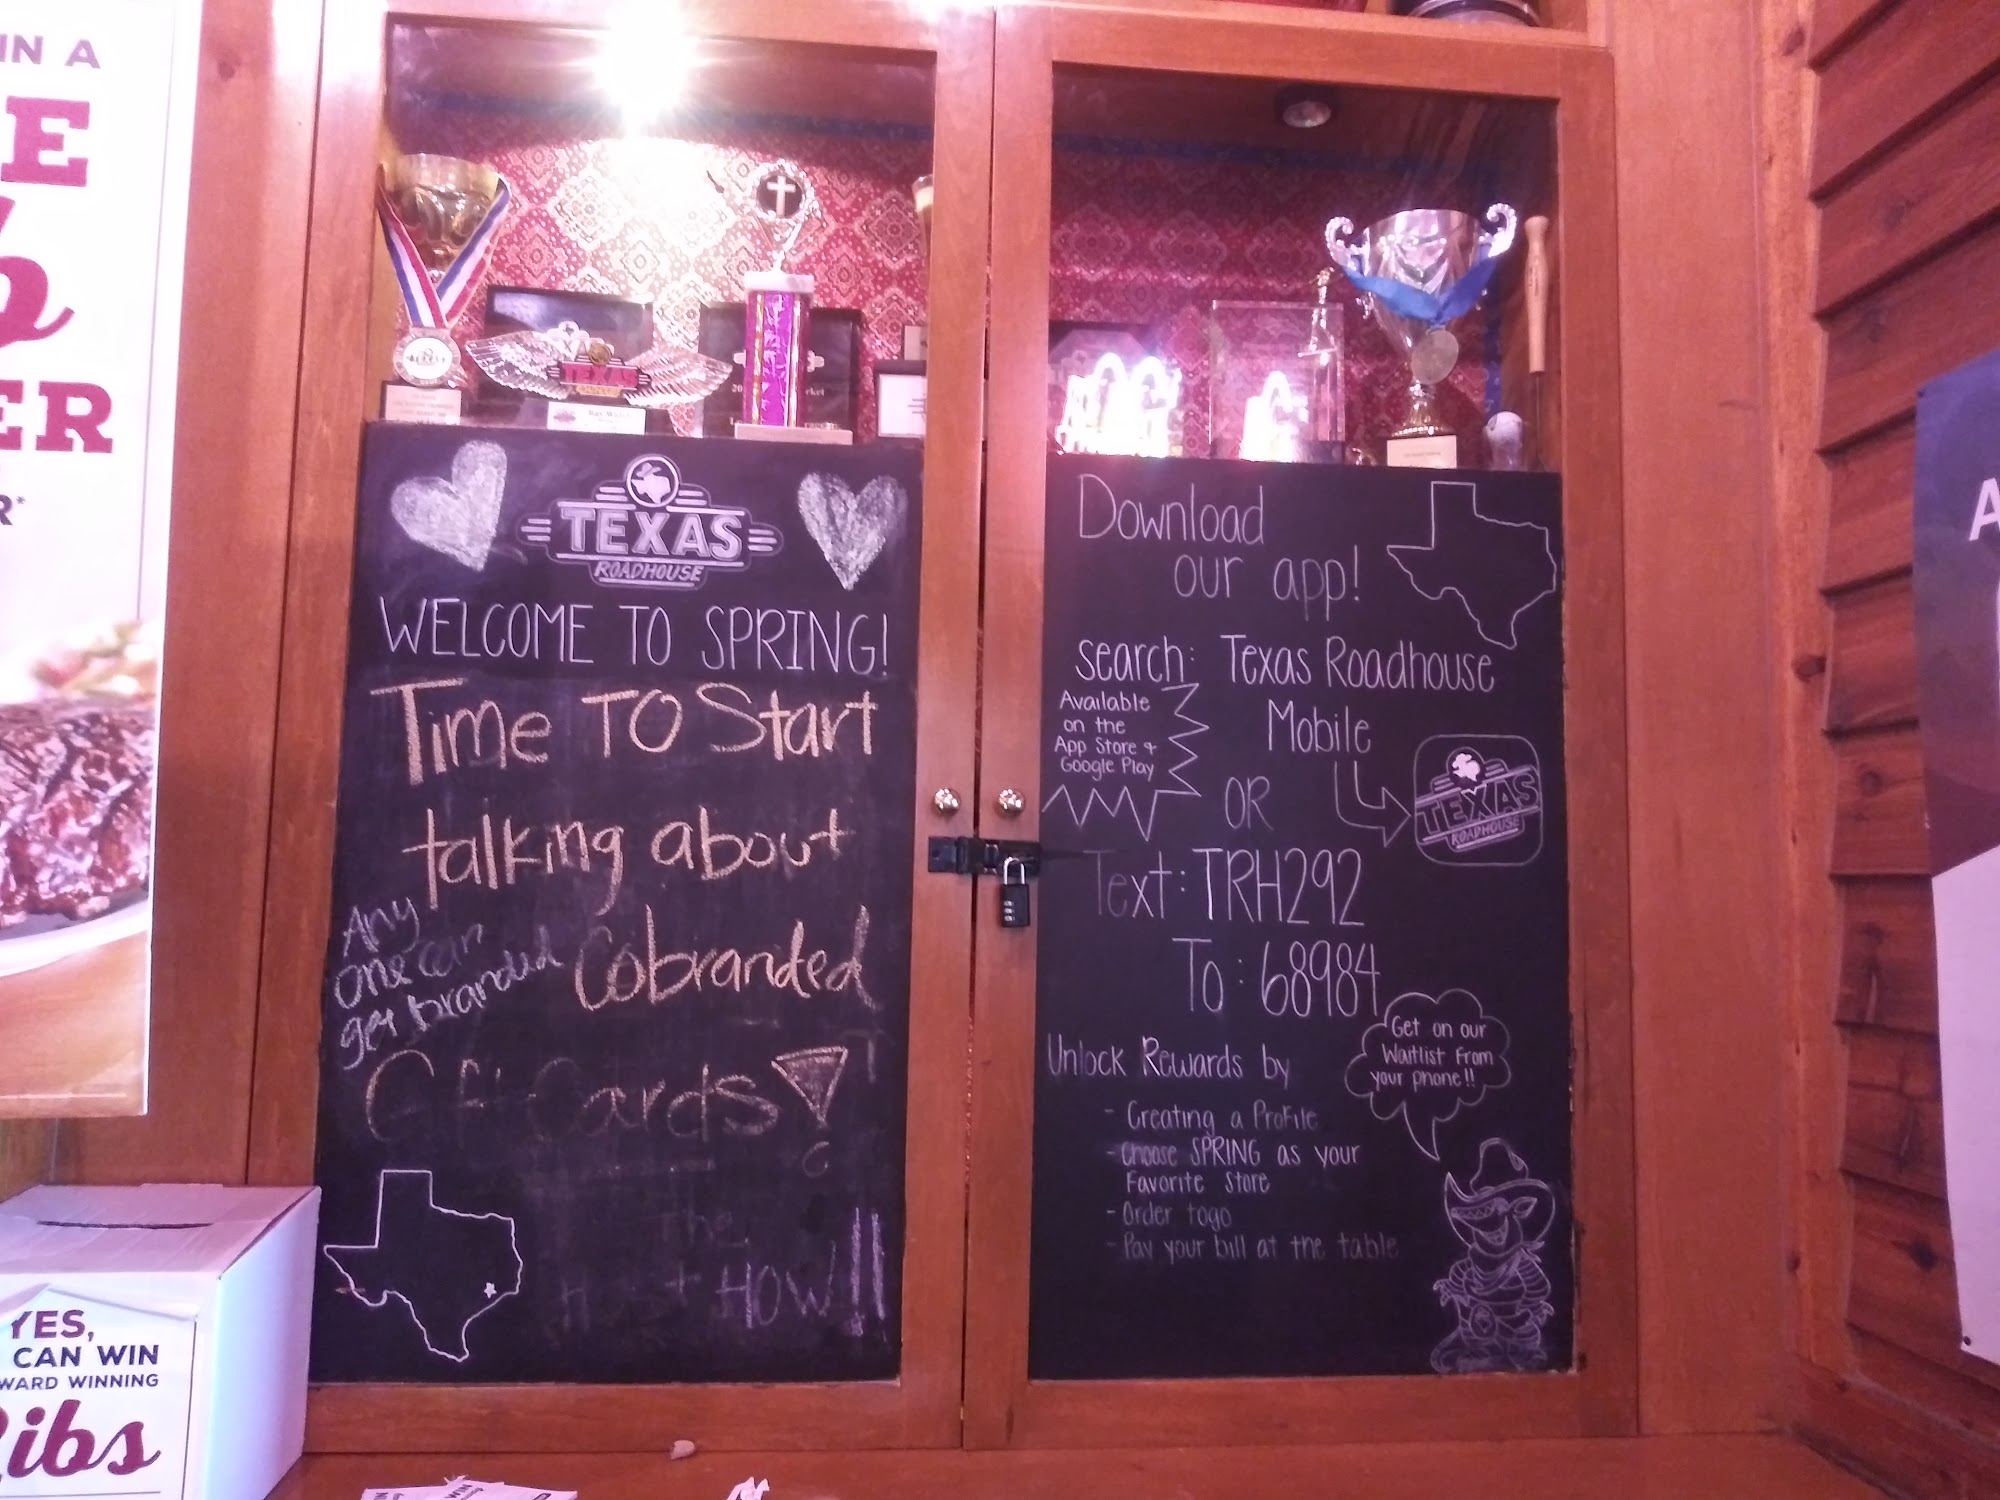 IN A
E
b
ER
R*
TEXAS
ROADHOUSE
WELCOME TO SPRING!
Time TO Start
talking about
Any
one can
get branded
Cobranded
Gift Cards!
The
HOW!!
Download
our app!
search: Texas Roadhouse
Mobile
Available
on the
App Store +
Google Play
OR
TEXAS
ROADHOUSE
Text: TRH292
To: 68984
Get on our
Waitlist From
your phone!!
Unlock Rewards by
- Creating a Profile
- Choose SPRING as your
Favorite Store
- Order togo
- Pay your bill at the table
TEXAS
YES,
CAN WIN
WARD WINNING
Ribs
A